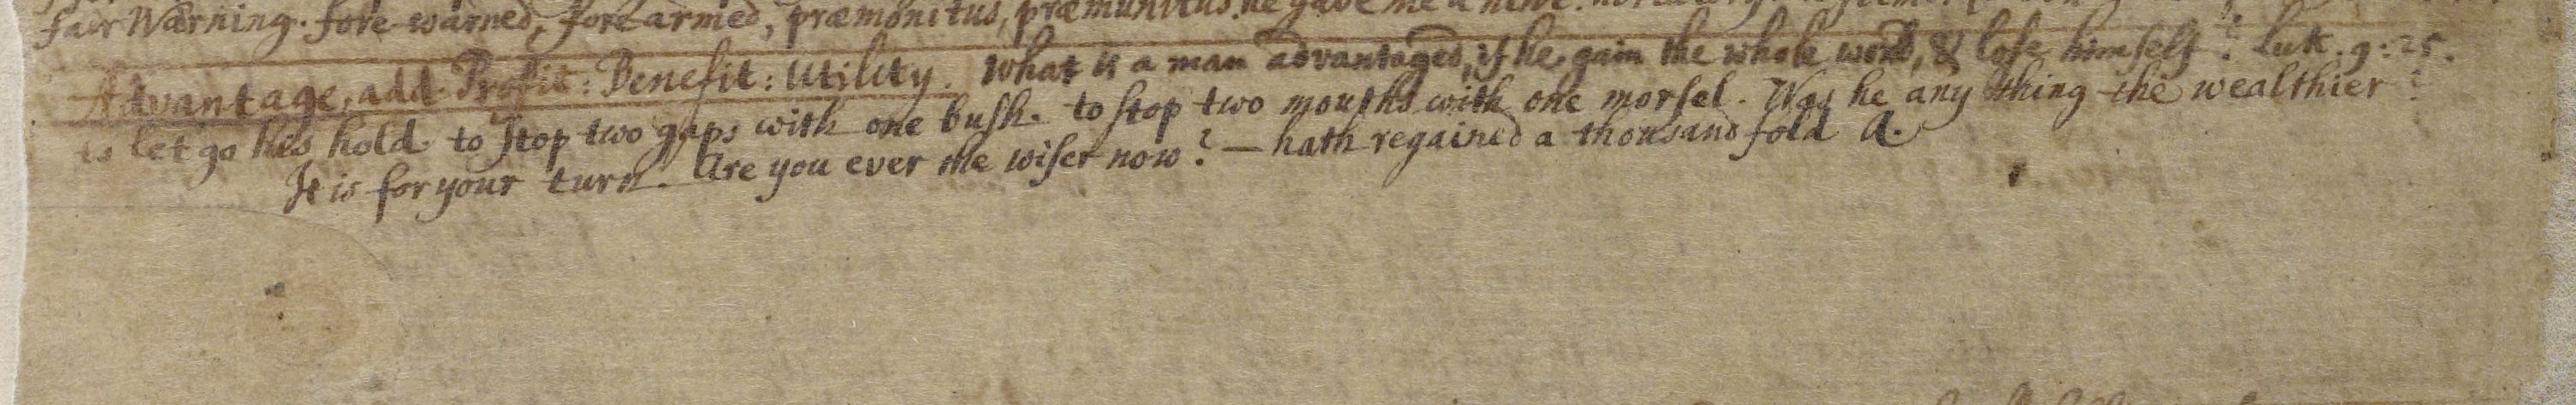 fair Warning. fore-warned, fore-armed, præmonitus, præmunitus. he gave me
Advantage, add Profit: Benefit: Utility. What is a man advantaged, if he gain the whole world, & lose himself? Luk. 9:25.
is let go his hold to stop two gaps with one bush. to stop two mouths with one morsel. Was he any thing the wealthier?
It is for your turn. Are you ever the wiser now? — hath regained a thousand fold A.